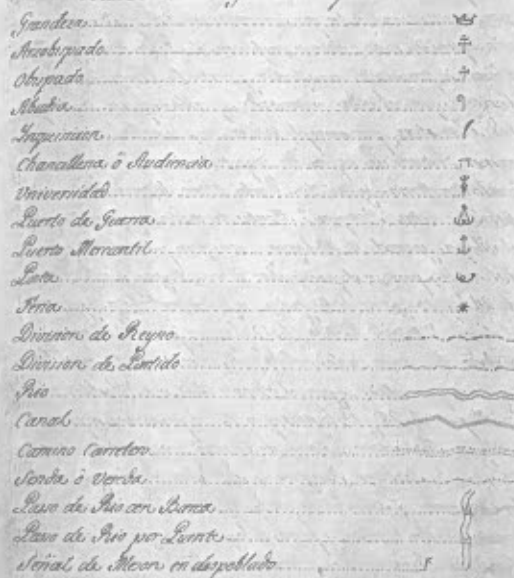 Grandeza
Arzobispado
Obispado
Abadia
Inquisicion
Chancilleria ô Audiencia
Universidad
Puerto de Guerra
Puerto Mercantil
Posta
Feria
Division de Reyno
Division de Partido
Rio
Canal
Camino Carretero
Senda ô Vereda
Paso de Rio con Barca
Paso de Rio por Puente
Señal de Meson en despoblado